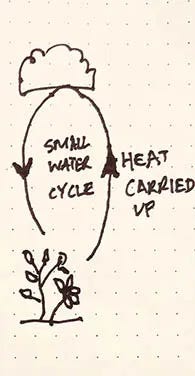 SMALL
WATER
CYCLE
HEAT
CARRIED
UP